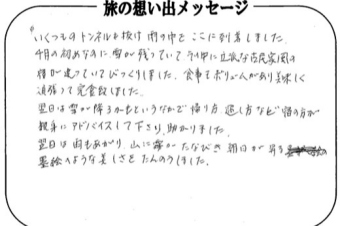 旅の想い出メッセージ
いくつものトンネルを抜け 雨の中を ここに到着しました。
4月の初めなのに、雪が残っていて 予約中に立派な古民家風の
宿が建っていてびっくりしました。食事もボリュームがあり美味しく
頑張って完食致しました。
翌日は雪が降るかもというなかで帰り方、過し方など宿の方が
親身にアドバイスして下さり、助かりました。
翌日は雨もあがり、山に霧がたなびき 朝日が昇る
墨絵のような美しさをたんのうしました。